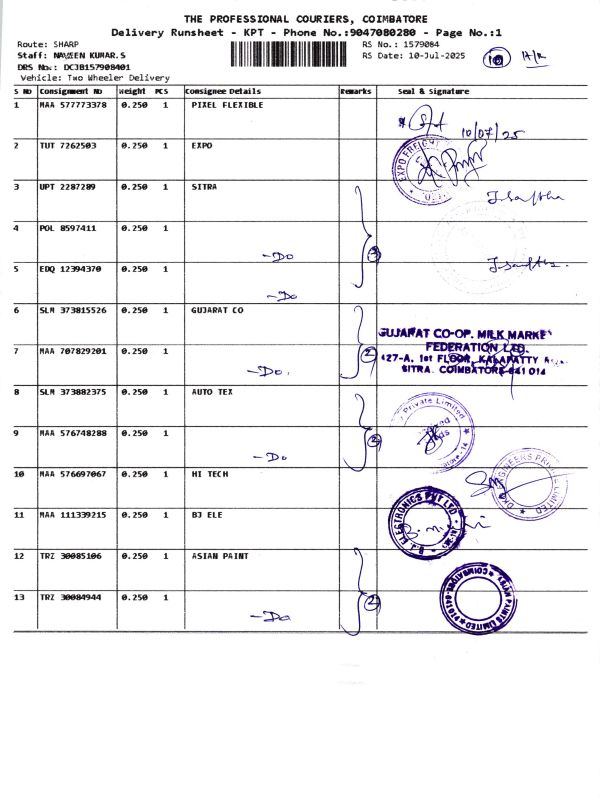 THE PROFESSIONAL COURIERS, COIMBATORE
Delivery Runsheet - KPT - Phone No.:9047080280 - Page No.:1
Route: SHARP
RS No.: 1579084
Staff: NAVEEN KUMAR.S
RS Date: 10-Jul-2025
10
DRS No.: DCJB157908401
Vehicle: Two Wheeler Delivery
S NO Consignment No Weight PCS Consignee Details Remarks Seal & Signature
1 MAA 577773378 0.250 1 PIXEL FLEXIBLE
10/07/25
2 TUT 7262503 0.250 1 EXPO
EXPO FREIGHT
3 UPT 2287289 0.250 1 SITRA
4 POL 8597411 0.250 1
-Do 3
5 EDQ 12394370 0.250 1
-Do
6 SLM 373815526 0.250 1 GUJARAT CO
GUJARAT CO-OP. MILK MARKE
FEDERATION LTD.
427-A, 1st FLOOR, KALAPATTY
SITRA. COIMBATORE-641 014
7 MAA 707829201 0.250 1
-Do. 2
8 SLM 373882375 0.250 1 AUTO TEX
Private Limited
9 MAA 576748288 0.250 1
-Do 2
10 MAA 576697067 0.250 1 HI TECH
ENGINEERS PRIVATE LIMITED
11 MAA 111339215 0.250 1 BJ ELE
ELECTRONICS PVT LTD
12 TRZ 30085106 0.250 1 ASIAN PAINT
13 TRZ 30084944 0.250 1
-Do 2
PAINTS LIMITED